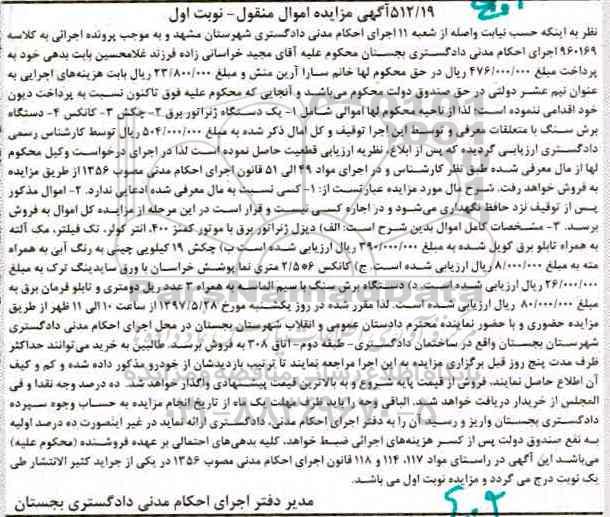 ۵۱۲/۱۹آگهی مزایده اموال منقول- نوبت اول
نظر به اینکه حسب نیابت واصله از شعبه ۱۱ اجرای احکام مدنی دادگستری شهرستان مشهد و به موجب پرونده اجرائی به کلاسه
۹۶۰۱۶۹ اجرای احکام مدنی دادگستری بجستان محکوم علیه آقای مجید خراسانی زاده فرزند غلامحسین بابت بدهی خود به
پرداخت مبلغ ۴۷۶/۰۰۰/۰۰۰ ریال در حق محکوم لها خانم سارا آرین منش و مبلغ ۲۳/۸۰۰/۰۰۰ بابت هزینه‌های اجرایی به
عنوان نیم عشر دولتی در حق صندوق دولت محکوم می‌باشد و آنجایی که محکوم علیه فوق تاکنون نسبت به پرداخت دیون
خود اقدامی ننموده است؛ لذا از ناحیه محکوم لها اموالی شامل ۱- یک دستگاه ژنراتور برق ۲-چکش ۳- کانکس ۴- دستگاه
برش سنگ با متعلقات معرفی و توسط این اجرا توقیف و کل امال ذکر شده به مبلغ ۵۰۴/۰۰۰/۰۰۰ ریال توسط کارشناس رسمی
دادگستری ارزیابی گردیده که پس از ابلاغ، نظریه ارزیابی قطعیت حاصل نموده است لذا در اجرای درخواست وکیل محکوم
لها از مال معرفی شده طبق نظر کارشناس و در اجرای مواد ۴۹ الی ۵۱ قانون اجرای احکام مدنی مصوب ۱۳۵۶ از طریق مزایده
به فروش خواهد رفت. شرح مال مورد مزایده عبارتست از: ۱- کسی نسبت به مال معرفی شده ادعایی ندارد. ۲- اموال مذکور
پس از توقیف نزد حافظ نگهداری می‌شود و در اجاره کسی نیست و قرار است در این مرحله از مزایده کل اموال به فروش
برسد. ۳- مشخصات کامل اموال بدین شرح است: الف) دیزل ژنراتور برق با موتور کمنز ۴۰۰، انتر کولر، تک فیلتر، مک آلته
به همراه تابلو برق کوپل شده به مبلغ ۳۹۰/۰۰۰/۰۰۰ ریال ارزیابی شده است ب) چکش ۱۹ کیلویی چینی به رنگ آبی به همراه
مته به مبلغ ۸/۰۰۰/۰۰۰ ریال ارزیابی شده است. ج) کانکس ۶*۲/۵ متری نما پوشش خراسان با ورق سایدینگ ترک به مبلغ
۲۶/۰۰۰/۰۰۰ ریال ارزیابی شده است. د) دستگاه برش سنگ با سیم الماسه به همراه ۳ عدد ریل دومتری و تابلو فرمان برق به
مبلغ ۸۰/۰۰۰/۰۰۰ ریال ارزیابی شده است. لذا مقرر شده در روز یکشنبه مورخ ۱۳۹۷/۵/۲۸ از ساعت ۱۰ الی ۱۱ ظهر از طریق
مزایده حضوری و با حضور نماینده محترم دادستان عمومی و انقلاب شهرستان بجستان در محل اجرای احکام مدنی دادگستری
شهرستان بجستان واقع در ساختمان دادگستری- طبقه دوم- اتاق ۳۰۸ به فروش برسد. طالبین به خرید می‌توانند حداکثر
ظرف مدت پنج روز قبل برگزاری مزایده به این اجرا مراجعه نمایند تا ترتیب بازدیدشان از خودرو مذکور داده شده و کم و کیف
آن اطلاع حاصل نمایند. فروش از قیمت پایه شروع و به بالاترین قیمت پیشنهادی واگذار خواهد شد. ده درصد وجه نقدا و فی
المجلس از خریدار دریافت خواهد شد. الباقی وجه را باید ظرف مهلت یک ماه از تاریخ انجام مزایده به حساب وجوه سپرده
دادگستری بجستان واریز و رسید آن را به دفتر اجرای احکام مدنی، دادگستری ارائه نماید در غیر اینصورت ده درصد اولیه
به نفع صندوق دولت پس از کسر هزینه‌های اجرائی ضبط خواهد، کلیه بدهی‌های احتمالی بر عهده فروشنده (محکوم علیه)
می‌باشد این آگهی در راستای مواد ۱۱۷، ۱۱۴ و ۱۱۸ قانون اجرای احکام مدنی مصوب ۱۳۵۶ در یکی از جراید کثیر الانتشار طی
یک نوبت درج می گردد و مزایده نوبت اول می باشد.
مدیر دفتر اجرای احکام مدنی دادگستری بجستان